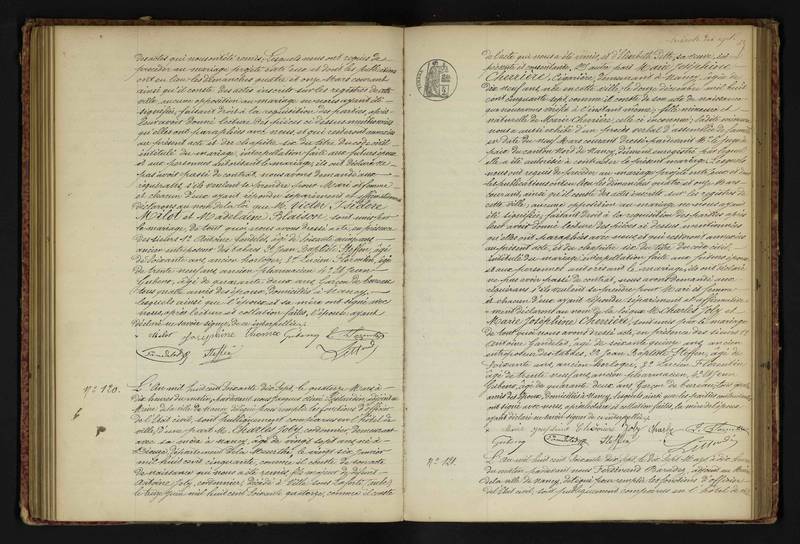 des actes qui nous ont été remis, lesquels nous ont requis de
procéder au mariage projeté entre eux et dont les publications
ont eu lieu les dimanches quatre et onze Mars courant
ainsi qu'il conste des actes inscrits sur les registres de cette
ville, aucune opposition au mariage ne nous ayant été
signifiée, faisant droit à la réquisition des parties, après
leur avoir donné lecture des pièces ci dessus mentionnées
qu'elles ont paraphées avec nous, et qui resteront annexées
au présent acte et du chapitre six du titre du code civil
intitulé du mariage, interpellation faite aux futurs époux
et aux personnes autorisant le mariage, ils ont déclaré ne
pas avoir passé de contrat, nous avons demandé aux
s'ils veulent se prendre pour Mari et femme
et chacun d'eux ayant répondu séparément et affirmativement
déclarons au nom de la loi que M. Victor Isidore
Milot et Madelaine Blaison sont unis par
le mariage, de tout quoi nous avons dressé acte, en présence
des sieurs 1° Antoine Candelot, âgé de soixante quinze ans,
ancien entreposeur des tabacs, 2° Jean Baptiste Steffen, âgé
de soixante ans, ancien horloger, 3° Lucien Florentin, âgé
de trente neuf ans, ancien pharmacien, 4° Jean
Gubeng, âgé de quarante deux ans, Garçon de bureau
tous quatre amis des époux, domiciliés à Nancy,
lesquels ainsi que l'époux et sa mère ont signé avec
nous, après lecture et collation faites, l'épouse ayant
déclaré ne savoir signer, de ce interpellée.
Milot Josephine Gubeng
Steffen
N° 120. L'An mil huit cent soixante dix sept, le onze Mars à
dix heures du matin, pardevant nous adjoint au
Maire de la ville de Nancy, délégué pour remplir les fonctions d'officier
de l'État civil, sont publiquement comparus en l'hôtel de
ville, d'une part M. Charles Joly, cordonnier, demeurant
avec sa mère à Nancy, âgé de vingt sept ans né à
département de la Meurthe, le vingt six janvier
mil huit cent cinquante, comme il conste de son acte
de naissance qui nous a été remis, fils majeur de défunt
Antoine Joly, cordonnier, décédé à Ville sous Laferté (Aube)
le treize Juin mil huit cent soixante quatorze, comme il conste
de l'acte qui nous a été remis, et d'Elisabeth sa veuve, ici
présente et consentante, d'autre part Marie Joséphine
Cherrière, Cigarière, demeurant à Nancy, âgée de
dix neuf ans, née en cette ville, le douze décembre mil huit
cent cinquante sept, comme il conste de son acte de naissance
sur nos registres vérifié à l'instant même, fille mineure et
naturelle de Marie Cherrière, celle ci inconnue, ladite mineure
nous a aussi exhibé d'un procès verbal d'assemblée de famille
en date du neuf Mars courant, dressé par devant M. le juge de
paix du canton nord de Nancy, dûment enregistré par lequel
elle a été autorisée à contracter le présent mariage. Lesquels
nous ont requis de procéder au mariage projeté entre eux et dont
les publications ont eu lieu les dimanches quatre et onze Mars
courant, ainsi qu'il conste des actes inscrits sur les registres de
cette ville, aucune opposition au mariage ne nous ayant
été signifiée, faisant droit à la réquisition des parties après
leur avoir donné lecture des pièces ci dessus mentionnées
qu'elles ont paraphées avec nous, et qui resteront annexées
au présent acte, et du chapitre six du titre du code civil,
intitulé du mariage, interpellation faite aux futurs époux
et aux personnes autorisant le mariage, ils ont déclaré
ne pas avoir passé de contrat, nous avons demandé aux
s'ils veulent se prendre pour Mari et femme
et chacun d'eux ayant répondu séparément et affirmative-
ment déclarons au nom de la loi que M. Charles Joly et
Marie Joséphine Cherrière, sont unis par le mariage
de tout quoi nous avons dressé acte, en présence des sieurs 1°
Antoine Candelot, âgé de soixante quinze ans, ancien
entreposeur des tabacs, 2° Jean Baptiste Steffen, âgé de
soixante ans, ancien horloger, 3° Lucien Florentin
âgé de trente neuf ans, ancien pharmacien, 4° Jean
Gubeng, âgé de quarante deux ans, Garçon de bureau, tous quatre
amis des époux, domiciliés à Nancy, lesquels ainsi que les parties contractantes
ont signé avec nous, après lecture et collation faites, la mère de l'époux
ayant déclaré ne savoir signer de ce interpellée.
Marie Josephine Cherrière Joly Charles
Gubeng Steffen
N° 121. L'An mil huit cent soixante dix sept, le dix sept Mars à dix heures
du matin, pardevant nous Ferdinand adjoint au Maire
de la ville de Nancy, délégué pour remplir les fonctions d'officier
de l'État civil, sont publiquement comparus en l'hôtel de